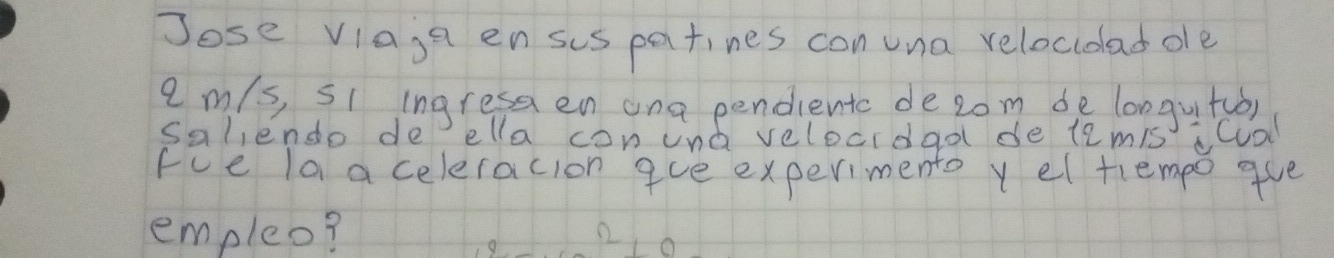 Jose viaja en sus patines con una velocidad de
2 m/s, si ingresa en una pendiente de 20m de longuitud,
saliendo de ella con una velocidad de 12 m/s ¿Cual
fue la aceleracion que experimento y el tiempo que
empleo?